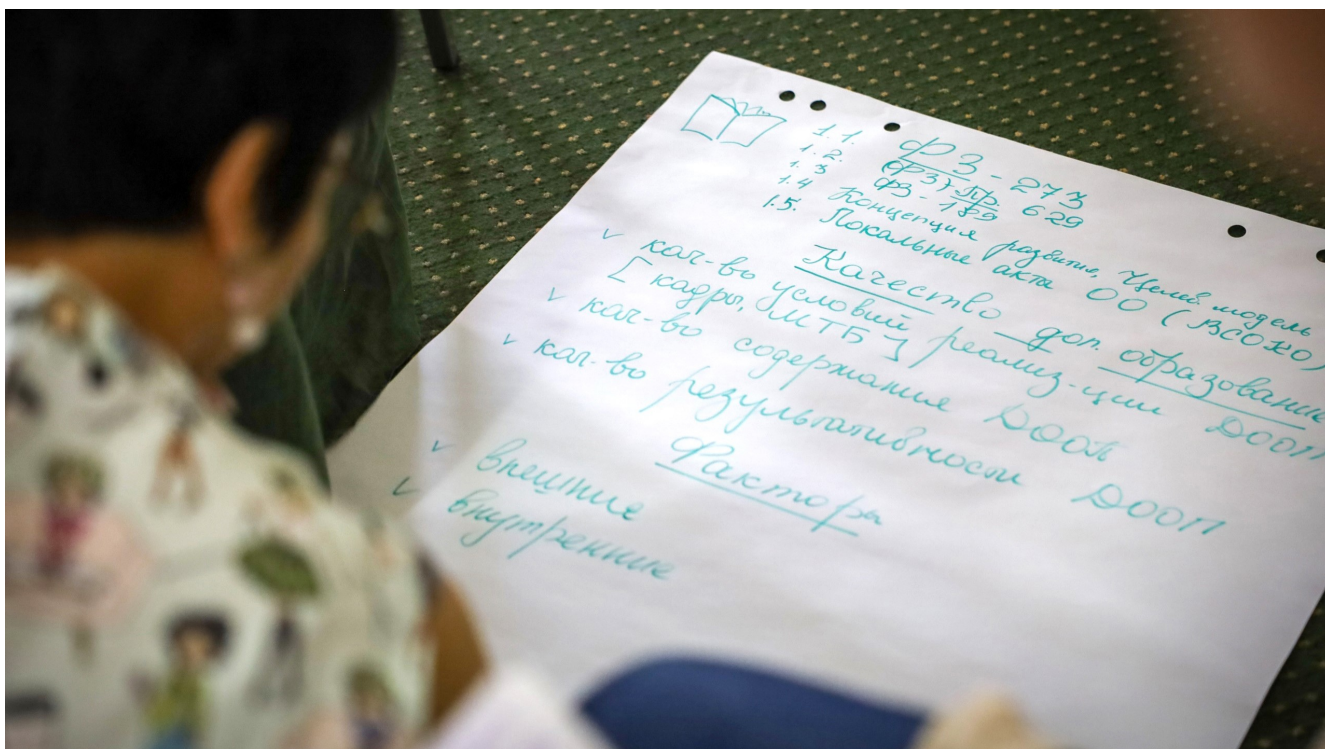 1.1. ФЗ - 273
1.2. (ФЗ)-Пр. 629
1.3 ФЗ - 189
1.4 Концепция развития, Целев. модель
1.5. Локальные акты ОО (ВСОКО)
Качество доп. образования
v кач-во условий реализ-ции ДООП
[кадры, МТБ]
v кач-во содержания ДООП
v кач-во результативности ДООП
Факторы
v внешние
v внутренние